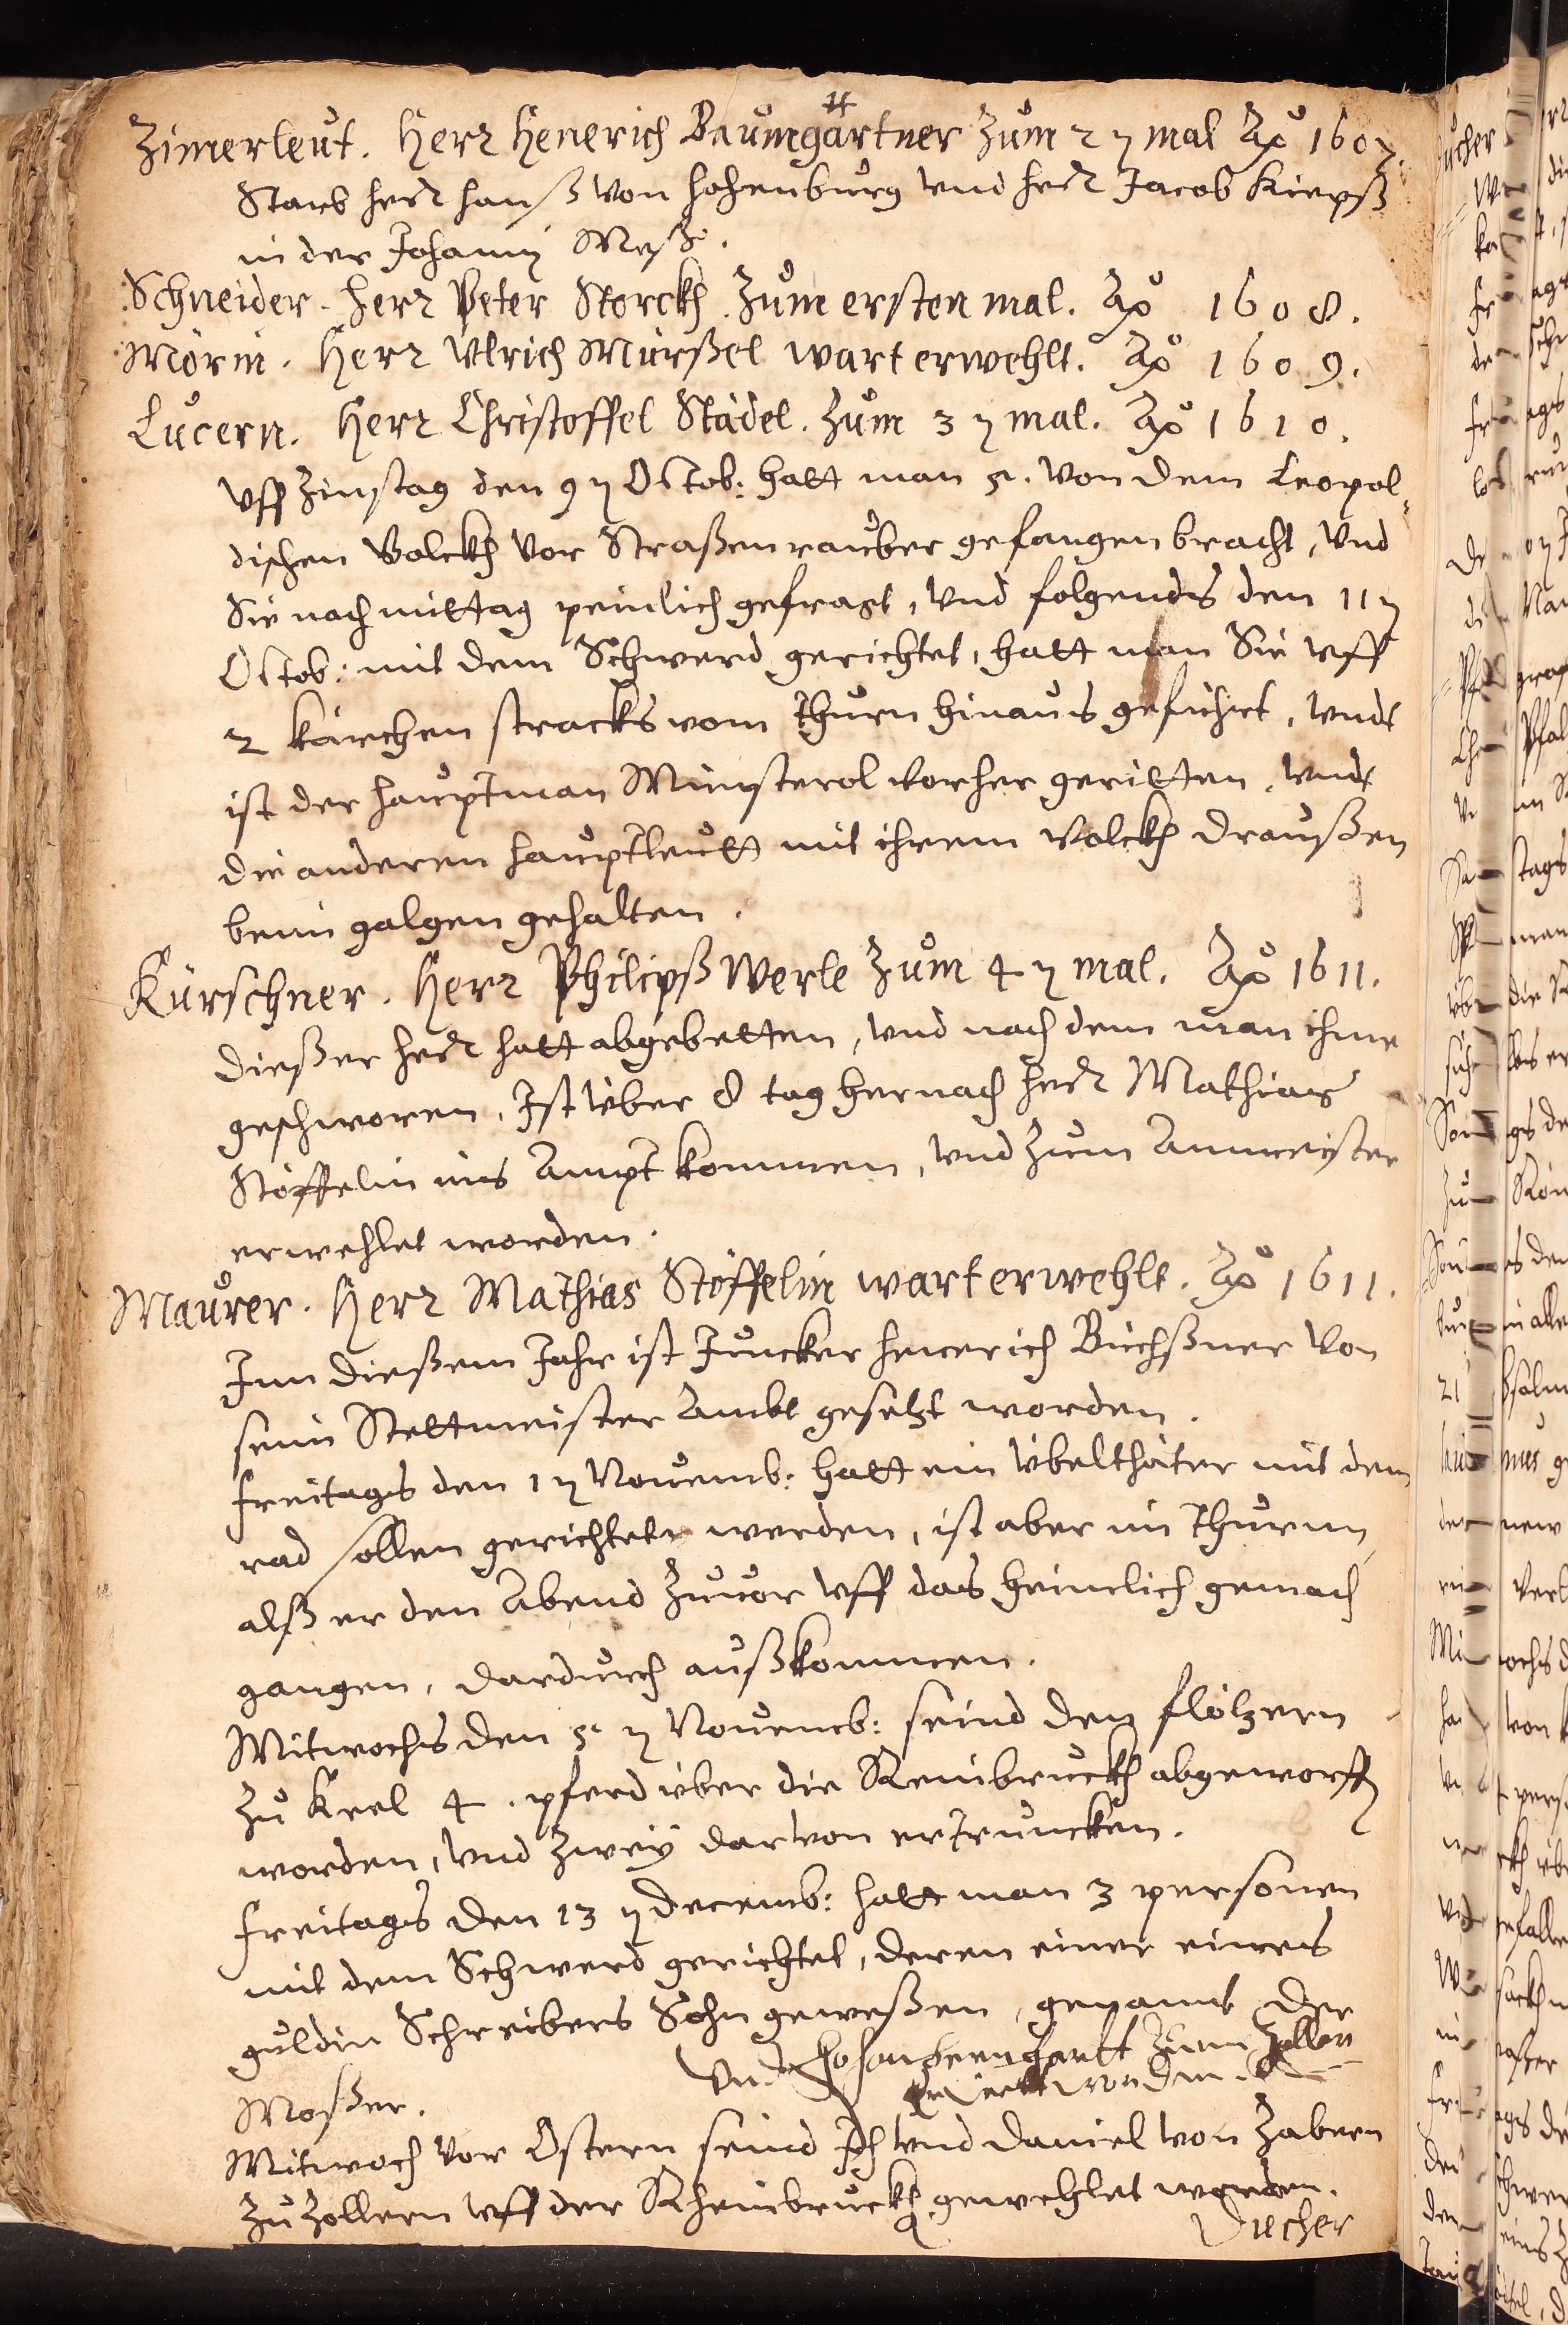 Zimerleut. Herr Henerich Baumgärtner zum 2 ten mal Ao 1607.
Starb herr hanß von hohenburg vnd herr Jacob Kirpß
in der Johanni Meß.
Schneider. herr Peter Storckh. Zum ersten mal. Ao 1608.
Mörin. Herr Vlrich Mürßel wart erwehlt. Ao 1609.
Lucern. Herr Christoffel Städel. Zum 3 ten mal. Ao 1610.
Vff Zinstag den 9 ten Octob: hatt man 5. von dem Leopol-
dischen Volckh vor Straßenrauber gefangen bracht, Vnd
Sie nachmittag peinlich gefragt, Vnd folgends den 11 ten
Octob: mit dem Schwerd gerichtet, hatt man Sie vff
2 kärchen stracks vom Thurn hinaus geführt, vndt
ist der hauptman Münsterol vorher geritten, vndt
die anderen hauptleutt mit ihrem Volckh draußen
beim galgen gehalten.
Kürschner. Herr Philipß Werle Zum 4 ten mal. Ao 1611.
dießer herr hatt abgebetten, vnd nach dem man ihme
geschworen, Ist über 8 tag hernach herr Mathias
Stöffelin ins Ampt kommen, vnd zum Ammeister
erwehlet worden.
Maurer. Herr Mathias Stöffelin wart erwehlt. Ao 1611.
Inn dießem Jahr ist Juncker henerich Büchßner von
seim Stettmeister Ambt gesetzt worden.
freitags den 1 ten Nouemb: hatt ein übelthäter mit dem
rad sollen gerichtet werden, ist aber im Thurnn,
alß er den Abend zuuor vff das heimlich gemach
gangen, dardurch außkommen.
Mitwochs den 5 ten Nouemb: seind den flötzern
zu Keel 4. pferd über die Reinbruckh abgeworffen
worden, Vnd zwey daruon ertruncken.
freitags den 13 ten Decemb: hatt man 3 personen
mit dem Schwerd gerichtet, deren einer eines
guldin Schreibers Sohn geweßen, genamt der
Moßer.
Mitwoch vor Ostern seind Ich vnd Daniel von Zabern
zu Zollern vff der Rheinbruckh gewehlet worden.
Tucher